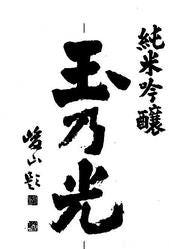 純米吟醸
玉乃光
峻山題